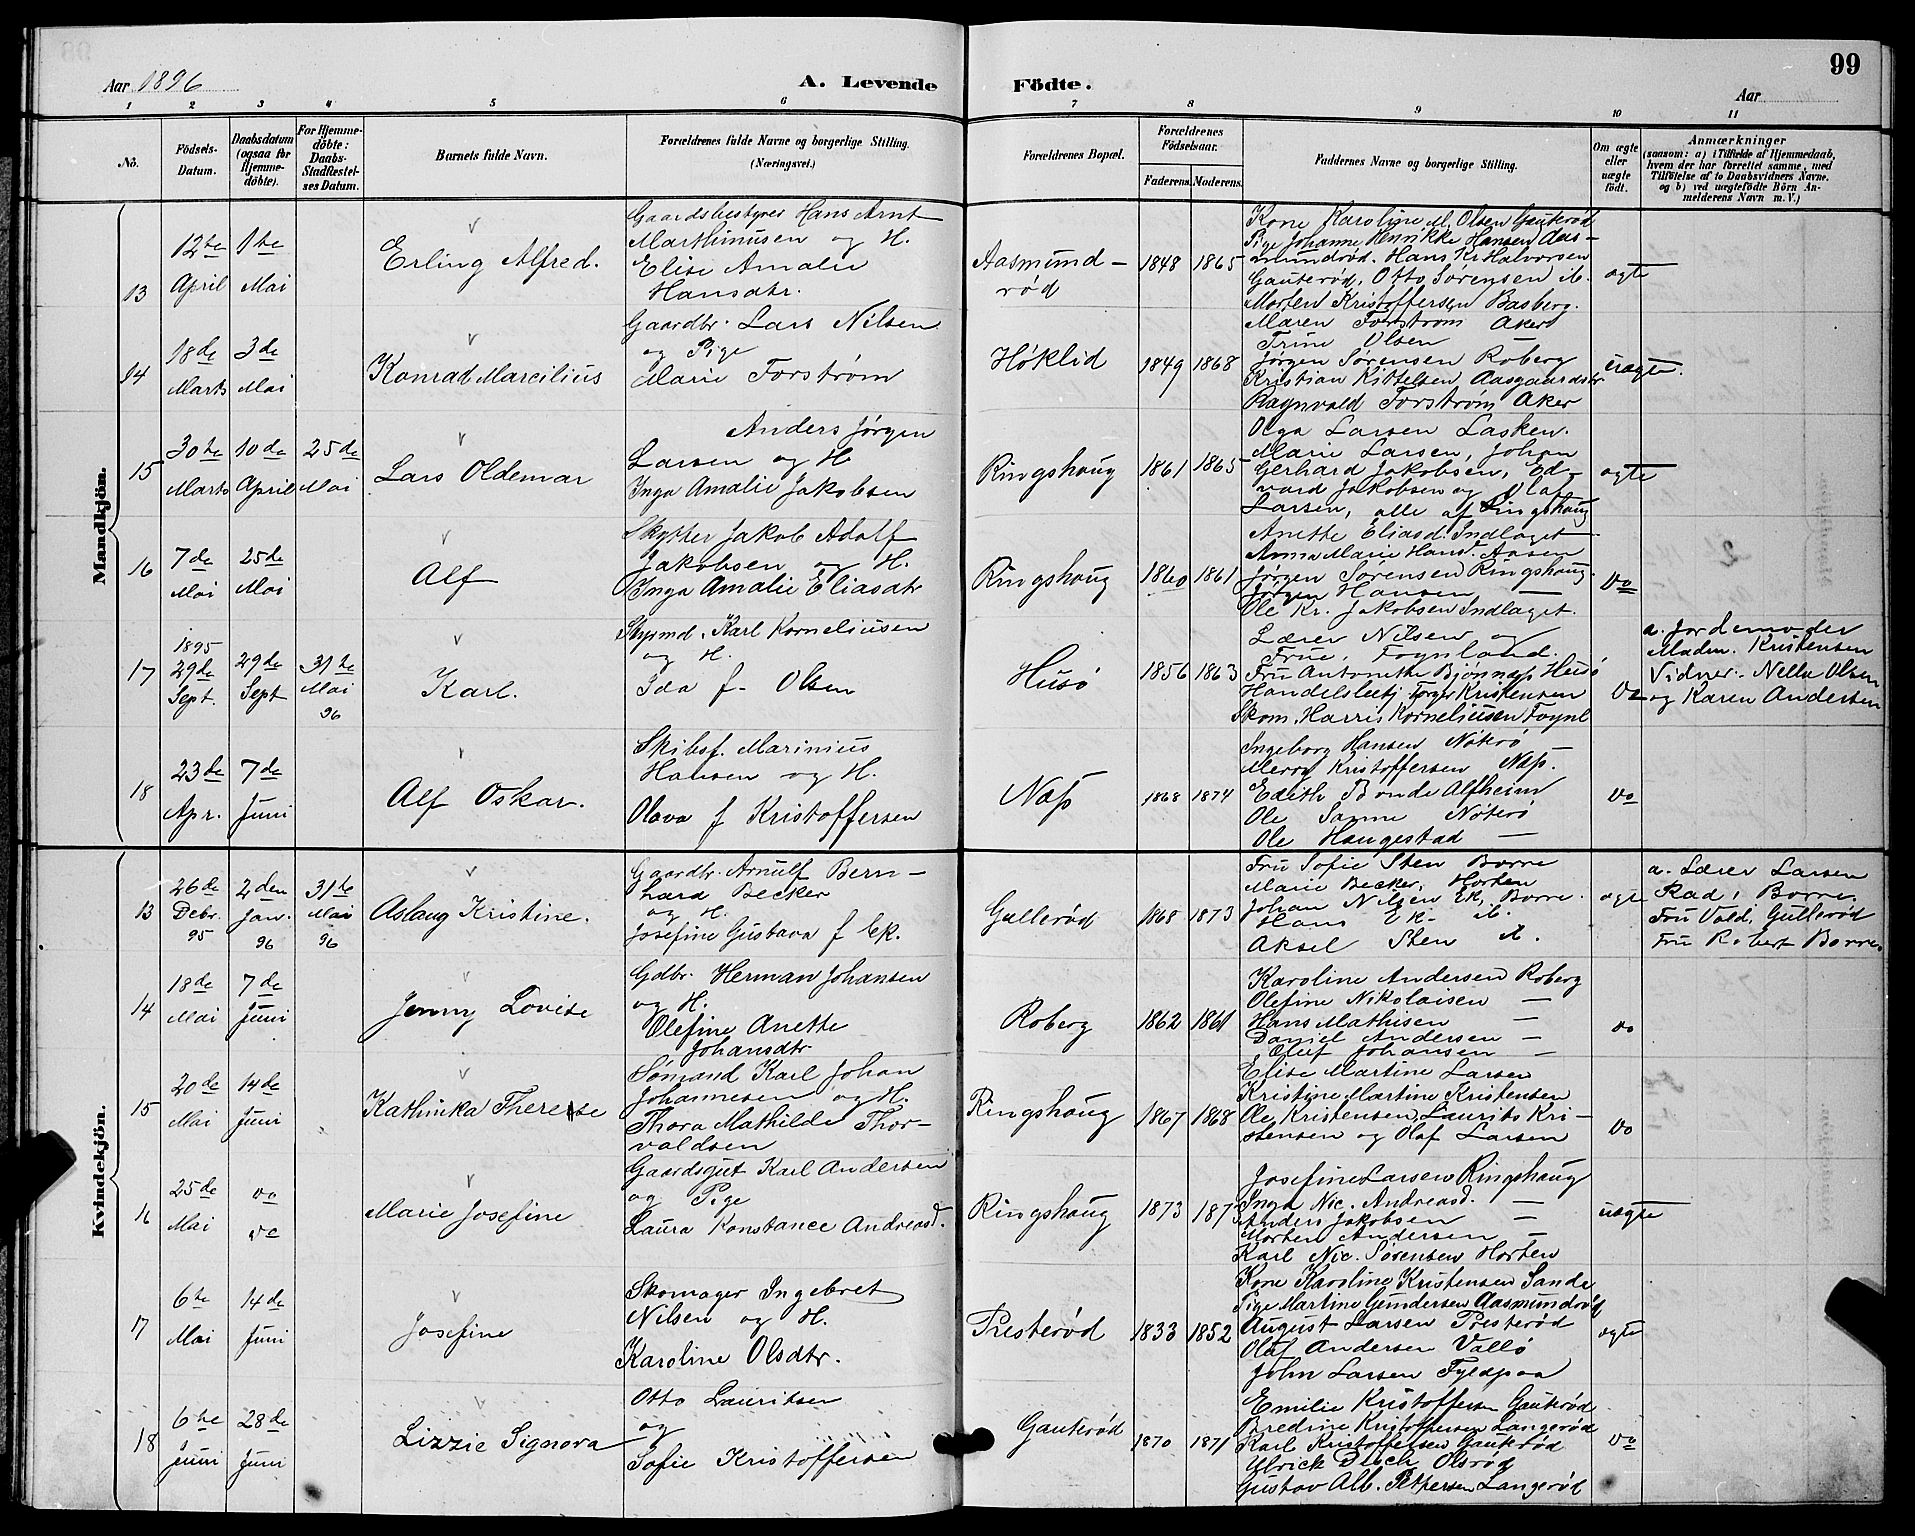 99
Aar 1896
A. Levende Födte.
Aar
1 2 3 4 5 6 7 8 9 10 11
No.
Födsels-Datum.
Daabsdatum (ogsaa for Hjemme-döbte).
For Hjemme-döbte: Daabs-Stadfæstel-ses Datum.
Barnets fulde Navn.
Forældrenes fulde Navne og borgerlige Stilling. (Næringsvei.)
Forældrenes Bopæl.
Forældrenes Födselsaar.
Faderens. Moderens.
Faddernes Navne og borgerlige Stilling.
Om ægte eller uægte födt.
Anmærkninger
(saasom: a) i Tilfælde af Hjemmedaab, hvem der har forrettet samme, med Tilföielse af to Daabsvidners Navne. og b) ved uægtefödte Börn An-melderens Navn m. V.)
Mandkjön.
13
12te April
1te Mai
Erling Alfred.
Gaardsbestyrer Hans Arnt
Marthinusen og H.
Elise Amalie
Hansdtr.
Aasmund-
röd
1848 1865
Kone Karoline M. Olsen Gauteröd
Pige Johanne Henrikke Hansen Aas-
mundröd. Hans Kr. Halvorsen
Gauteröd, Otto Sørensen
Morten Kristoffersen Basberg.
ægte
14
18de Marts
3de Mai
Konrad Marcilius
Gaardbr. Lars Nilsen
og Pige
Marie Forström
Høklid
1849 1868
Maren Forström Aker
Trine Olsen
Jørgen Sørensen Roberg
Kristian Kittelsen Aasgaardstr
Ragnvald Forström Aker
uægte.
15
30te Marts
10de April
25de Mai
Lars Oldemar
Anders Jørgen
Larsen og H
Inga Amalie Jakobsen
Ringshaug
1861 1865
Olga Larsen Lasken.
Marie Larsen, Johan
Gerhard Jakobsen, Ed-
vard Jakobsen og Olaf
Larsen, alle af Ringshaug
ægte
16
7de Mai
25de Mai
Alf
Skytter Jakob Adolf
Jakobsen og H.
Inga Amalie Eliasdtr
Ringshaug
1860 1861
Anette Eliasd. Indlaget
Anna Marie Hansd. Aasen
Jørgen Sørensen Ringshaug
Jørgen Hansen —
Ole Kr. Jakobsen Indlaget.
do
17
1895
29de Sept.
29de Sept
31te Mai 96
Karl.
Styrmd. Karl Korneliusen
og H.
Ida f. Olsen
Husö
1856 1863
Lærer Nilsen og
Frue, Foynland.
Fru Antonette Bjønnes Husö
Handelsbetj Torger Kristensen
Skom. Harris Korneliusen Foynl
do
a. Jordemoder
Madm. Kristensen
Vidner. Nella Olsen
og Karen Andersen
18
23de Apr.
7de Juni
Alf Oskar.
Skibsf. Marinius
Hansen og H.
Olava f Kristoffersen
Næs
1868 1874
Ingeborg Hansen Nöterö
Merry Kristoffersen Næs.
Edith Bonde Alfheim
Ole Sanne Nöterö
Ole Haugestad —
do
Kvindekjön.
13
26de Debr. 95
2den Jan. 96
31te Mai 96
Aslaug Kristine.
Gaardbr. Arnulf Bern-
hard Becker
og H.
Josefine Gustava f Ek.
Gulleröd
1868 1873
Fru Sofie Sten Borre
Marie Becker, Horten
Johan Nilsen Ek, Borre.
Hans Ek -
Aksel Sten
ægte
a. Lærer Larsen
Rad, Borre.
Fru Vold, Gulleröd
Fru Robert Borre.
14
18de Mai
7de Juni
Jenny Lovise
Gdbr. Herman Johansen
og H.
Olefine Anette
Johansdtr
Roberg
1862 1861
Karoline Andersen Roberg
Olefine Nikolaisen —
Hans Mathisen —
Daniel Andersen —
Oluf Johansen —
do
15
20de Mai
14de Juni
Kathinka Therese
Sömand Karl Johan
Johannesen og H.
Thora Mathilde Thor-
valdsen
Ringshaug
1867 1868
Elise Martine Larsen
Kristine Martine Kristensen
Ole Kristensen, Laurits Kri-
stensen og Olaf Larsen
do
16
25de Mai
do do
Marie Josefine
Gaardsgut Karl Andersen
og Pige
Laura Konstance Andreasd.
Ringshaug
1873
Josefine Larsen Ringshaug
Inga Nic. Andreasd. —
Anders Jakobsen —
Morten Andersen —
Karl Nic. Sørensen Horten
uægte
17
6te Mai
14de Juni
Josefine
Skomager Ingebret
Nilsen og H.
Karoline Olsdtr.
Presteröd
1833 1852
Kone Karoline Kristensen Sande
Pige Martine Gundersen Aasmundröd
August Larsen Presteröd
Olaf Andersen Vallö
John Larsen Fyldpaa
ægte
18
6te Juni
28de Juni
Lizzie Signora
Otto Lauritsen
og
Sofie Kristoffersen
Gauteröd
1870 1871
Emilie Kristoffersen Gauteröd
Bredine Kristoffersen Langeröd
Karl Kristoffersen Gauteröd
Ulrick Olsröd
Gustav Alb. Pettersen Langeröd
do